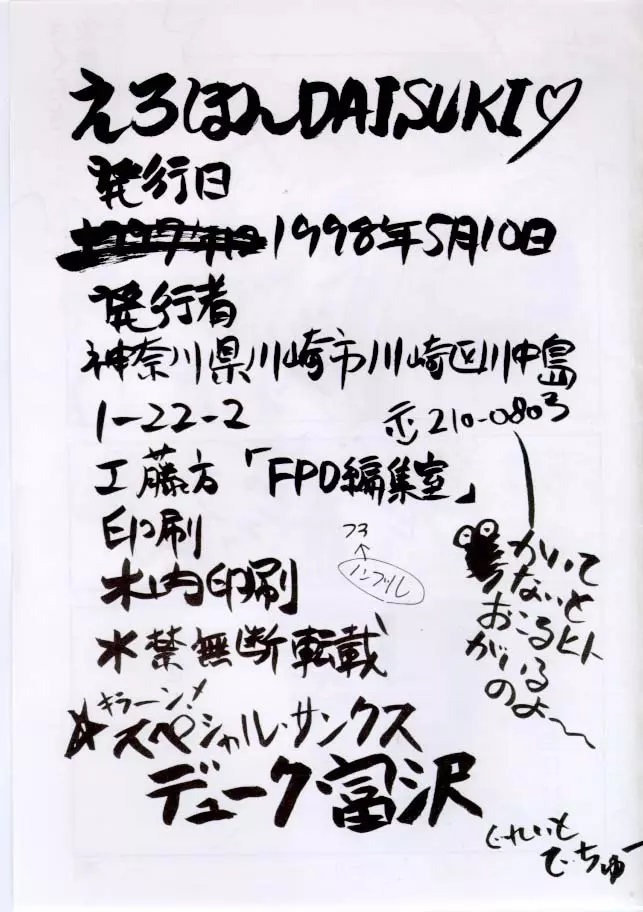 えろほんDAISUKI♡
発行日
1998年5月10日
発行者
神奈川県川崎市川崎区川中島
1-22-2 〒210-0803
工藤方「FPO編集室」
印刷
木内印刷
水禁無断転載
73
↑
ノンブル
かいて
ないと
おこるヒト
がいる
のよ〜
キラーン!
☆スペシャル・サンクス
デューク富沢
ぐれいと
でちゅー